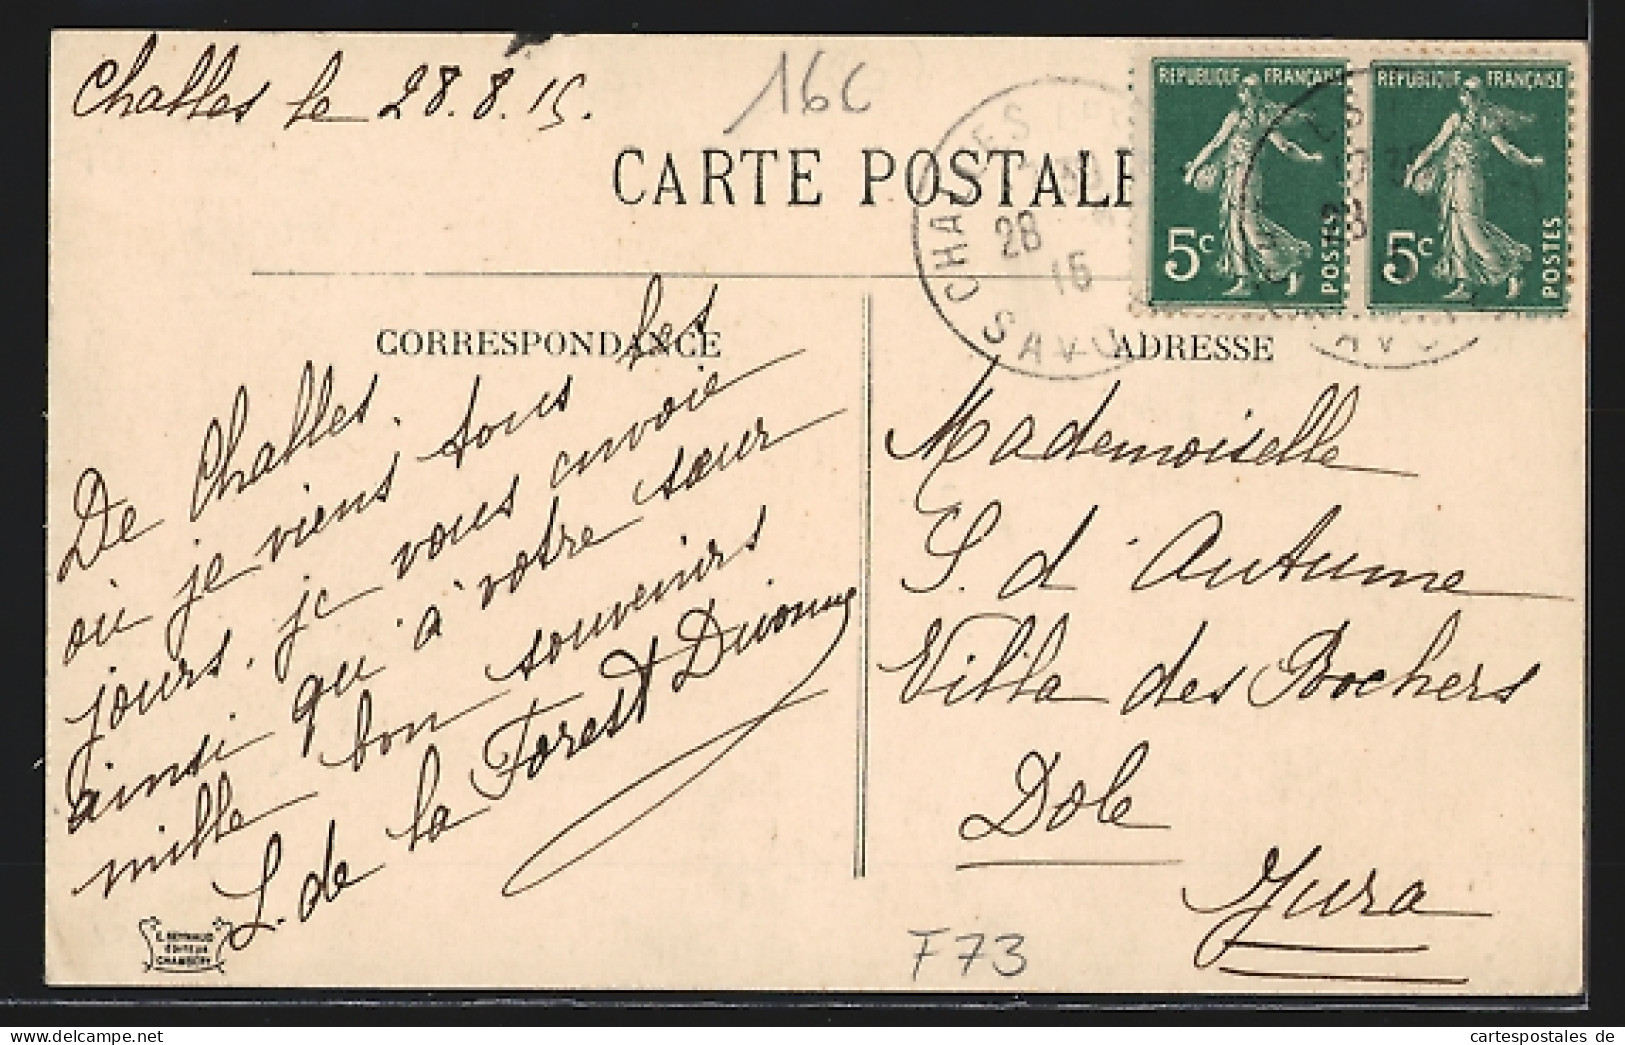 Challes le 28.8.15.
16c
CARTE POSTALE
REPUBLIQUE FRANÇAISE
5c
POSTES
REPUBLIQUE FRANÇAISE
5c
POSTES
CHALLES
28
15
SAVO
CORRESPONDANCE
ADRESSE
De Challes.
où je viens tous les
jours. je vous envoie
ainsi qu'à votre sœur
mille bon souvenirs
L. de la Forest Divonne
Mademoiselle
S. d'Autume
Villa des Rochers
Dole
Jura
E. REYNAUD
ÉDITEUR
CHAMBÉRY
F73
www.delcampe.net
cartespostales de